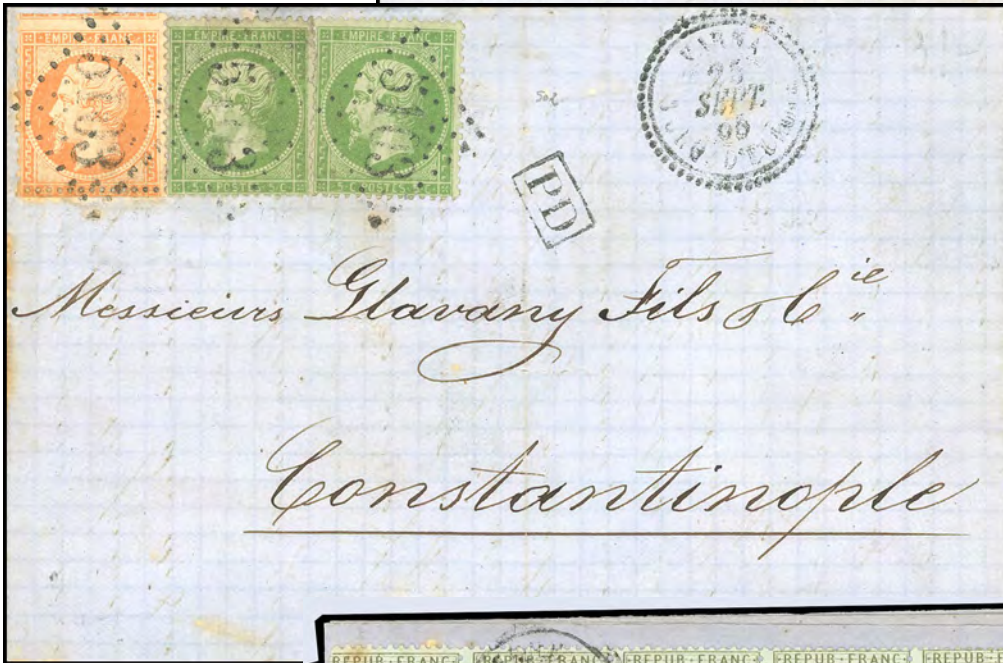 EMPIRE FRANC EMPIRE FRANC EMPIRE FRANC
5103 5103
5 C POSTES 5 C 5 C POSTES 5 C
VARNA
SEPT.
66
PD
Messieurs Glavany Fils & Cie
Constantinople
REPUB FRANC REPUB FRANC REPUB FRANC REPUB FRANC REPUB F